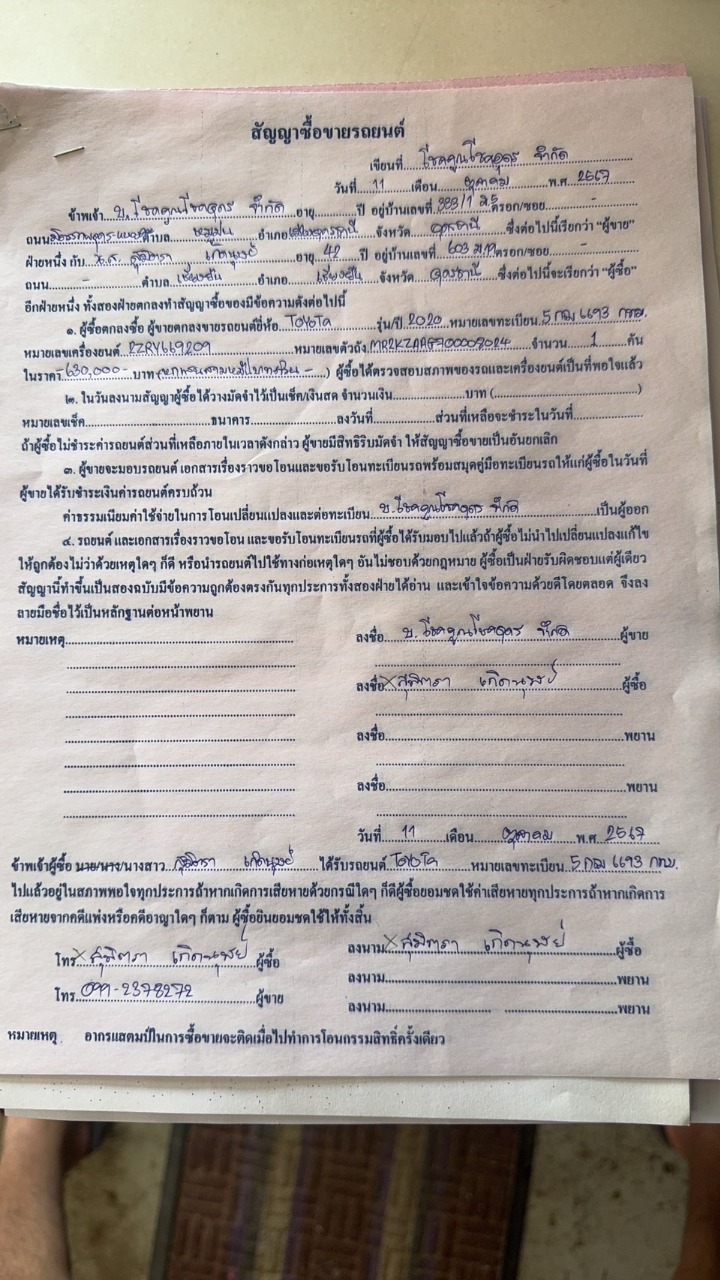 สัญญาซื้อขายรถยนต์
เขียนที่ โชคคูณโชคอุดร จำกัด
วันที่ 11 เดือน ตุลาคม พ.ศ. 2567
ข้าพเจ้า บ.โชคคูณโชคอุดร จำกัด อายุ ปี อยู่บ้านเลขที่ 888/1 ม.5 ตรอก/ซอย -
ถนน ตำบล หมูม่น อำเภอ เมืองอุดรธานี จังหวัด อุดรธานี ซึ่งต่อไปนี้เรียกว่า "ผู้ขาย"
ฝ่ายหนึ่ง กับ น.ส. สุมิตรา อายุ 42 ปี อยู่บ้านเลขที่ 603 ตรอก/ซอย -
ถนน - ตำบล อำเภอ จังหวัด อุดรธานี ซึ่งต่อไปนี้จะเรียกว่า "ผู้ซื้อ"
อีกฝ่ายหนึ่ง ทั้งสองฝ่ายตกลงทำสัญญาซื้อของมีข้อความดังต่อไปนี้
๑. ผู้ซื้อตกลงซื้อ ผู้ขายตกลงขายรถยนต์ยี่ห้อ TOYOTA รุ่น/ปี 2020 หมายเลขทะเบียน 5 กฌ 6693 กทม.
หมายเลขเครื่องยนต์ หมายเลขตัวถัง จำนวน 1 คัน
ในราคา -630,000- บาท (หกแสนสามหมื่นบาทถ้วน -) ผู้ซื้อได้ตรวจสอบสภาพของรถและเครื่องยนต์เป็นที่พอใจแล้ว
๒. ในวันลงนามสัญญาผู้ซื้อได้วางมัดจำไว้เป็นเช็ค/เงินสด จำนวนเงิน บาท ( )
หมายเลขเช็ค ธนาคาร ลงวันที่ ส่วนที่เหลือจะชำระในวันที่
ถ้าผู้ซื้อไม่ชำระค่ารถยนต์ส่วนที่เหลือภายในเวลาดังกล่าว ผู้ขายมีสิทธิริบมัดจำ ให้สัญญาซื้อขายเป็นอันยกเลิก
๓. ผู้ขายจะมอบรถยนต์ เอกสารเรื่องราวขอโอนและขอรับโอนทะเบียนรถพร้อมสมุดคู่มือทะเบียนรถให้แก่ผู้ซื้อในวันที่
ผู้ขายได้รับชำระเงินค่ารถยนต์ครบถ้วน
ค่าธรรมเนียมค่าใช้จ่ายในการโอนเปลี่ยนแปลงและต่อทะเบียน บ.โชคคูณโชคอุดร จำกัด เป็นผู้ออก
๔. รถยนต์ และเอกสารเรื่องราวขอโอน และขอรับโอนทะเบียนรถที่ผู้ซื้อได้รับมอบไปแล้วถ้าผู้ซื้อไม่นำไปเปลี่ยนแปลงแก้ไข
ให้ถูกต้องไม่ว่าด้วยเหตุใดๆ ก็ดี หรือนำรถยนต์ไปใช้ทางก่อเหตุใดๆ อันไม่ชอบด้วยกฎหมาย ผู้ซื้อเป็นฝ่ายรับผิดชอบแต่ผู้เดียว
สัญญานี้ทำขึ้นเป็นสองฉบับมีข้อความถูกต้องตรงกันทุกประการทั้งสองฝ่ายได้อ่าน และเข้าใจข้อความด้วยดีโดยตลอด จึงลง
ลายมือชื่อไว้เป็นหลักฐานต่อหน้าพยาน
หมายเหตุ ลงชื่อ บ.โชคคูณโชคอุดร จำกัด ผู้ขาย
ลงชื่อ x สุมิตรา ผู้ซื้อ
ลงชื่อ พยาน
ลงชื่อ พยาน
วันที่ 11 เดือน ตุลาคม พ.ศ. 2567
ข้าพเจ้าผู้ซื้อ นาย/นาง/นางสาว สุมิตรา ได้รับรถยนต์ TOYOTA หมายเลขทะเบียน 5 กฌ 6693 กทม.
ไปแล้วอยู่ในสภาพพอใจทุกประการถ้าหากเกิดการเสียหายด้วยกรณีใดๆ ก็ดีผู้ซื้อยอมชดใช้ค่าเสียหายทุกประการถ้าหากเกิดการ
เสียหายจากคดีแพ่งหรือคดีอาญาใดๆ ก็ตาม ผู้ซื้อยินยอมชดใช้ให้ทั้งสิ้น
โทร x สุมิตรา ผู้ซื้อ ลงนาม x สุมิตรา ผู้ซื้อ
ลงนาม พยาน
โทร 099-2378272 ผู้ขาย
ลงนาม พยาน
หมายเหตุ อากรแสตมป์ในการซื้อขายจะติดเมื่อไปทำการโอนกรรมสิทธิ์ครั้งเดียว